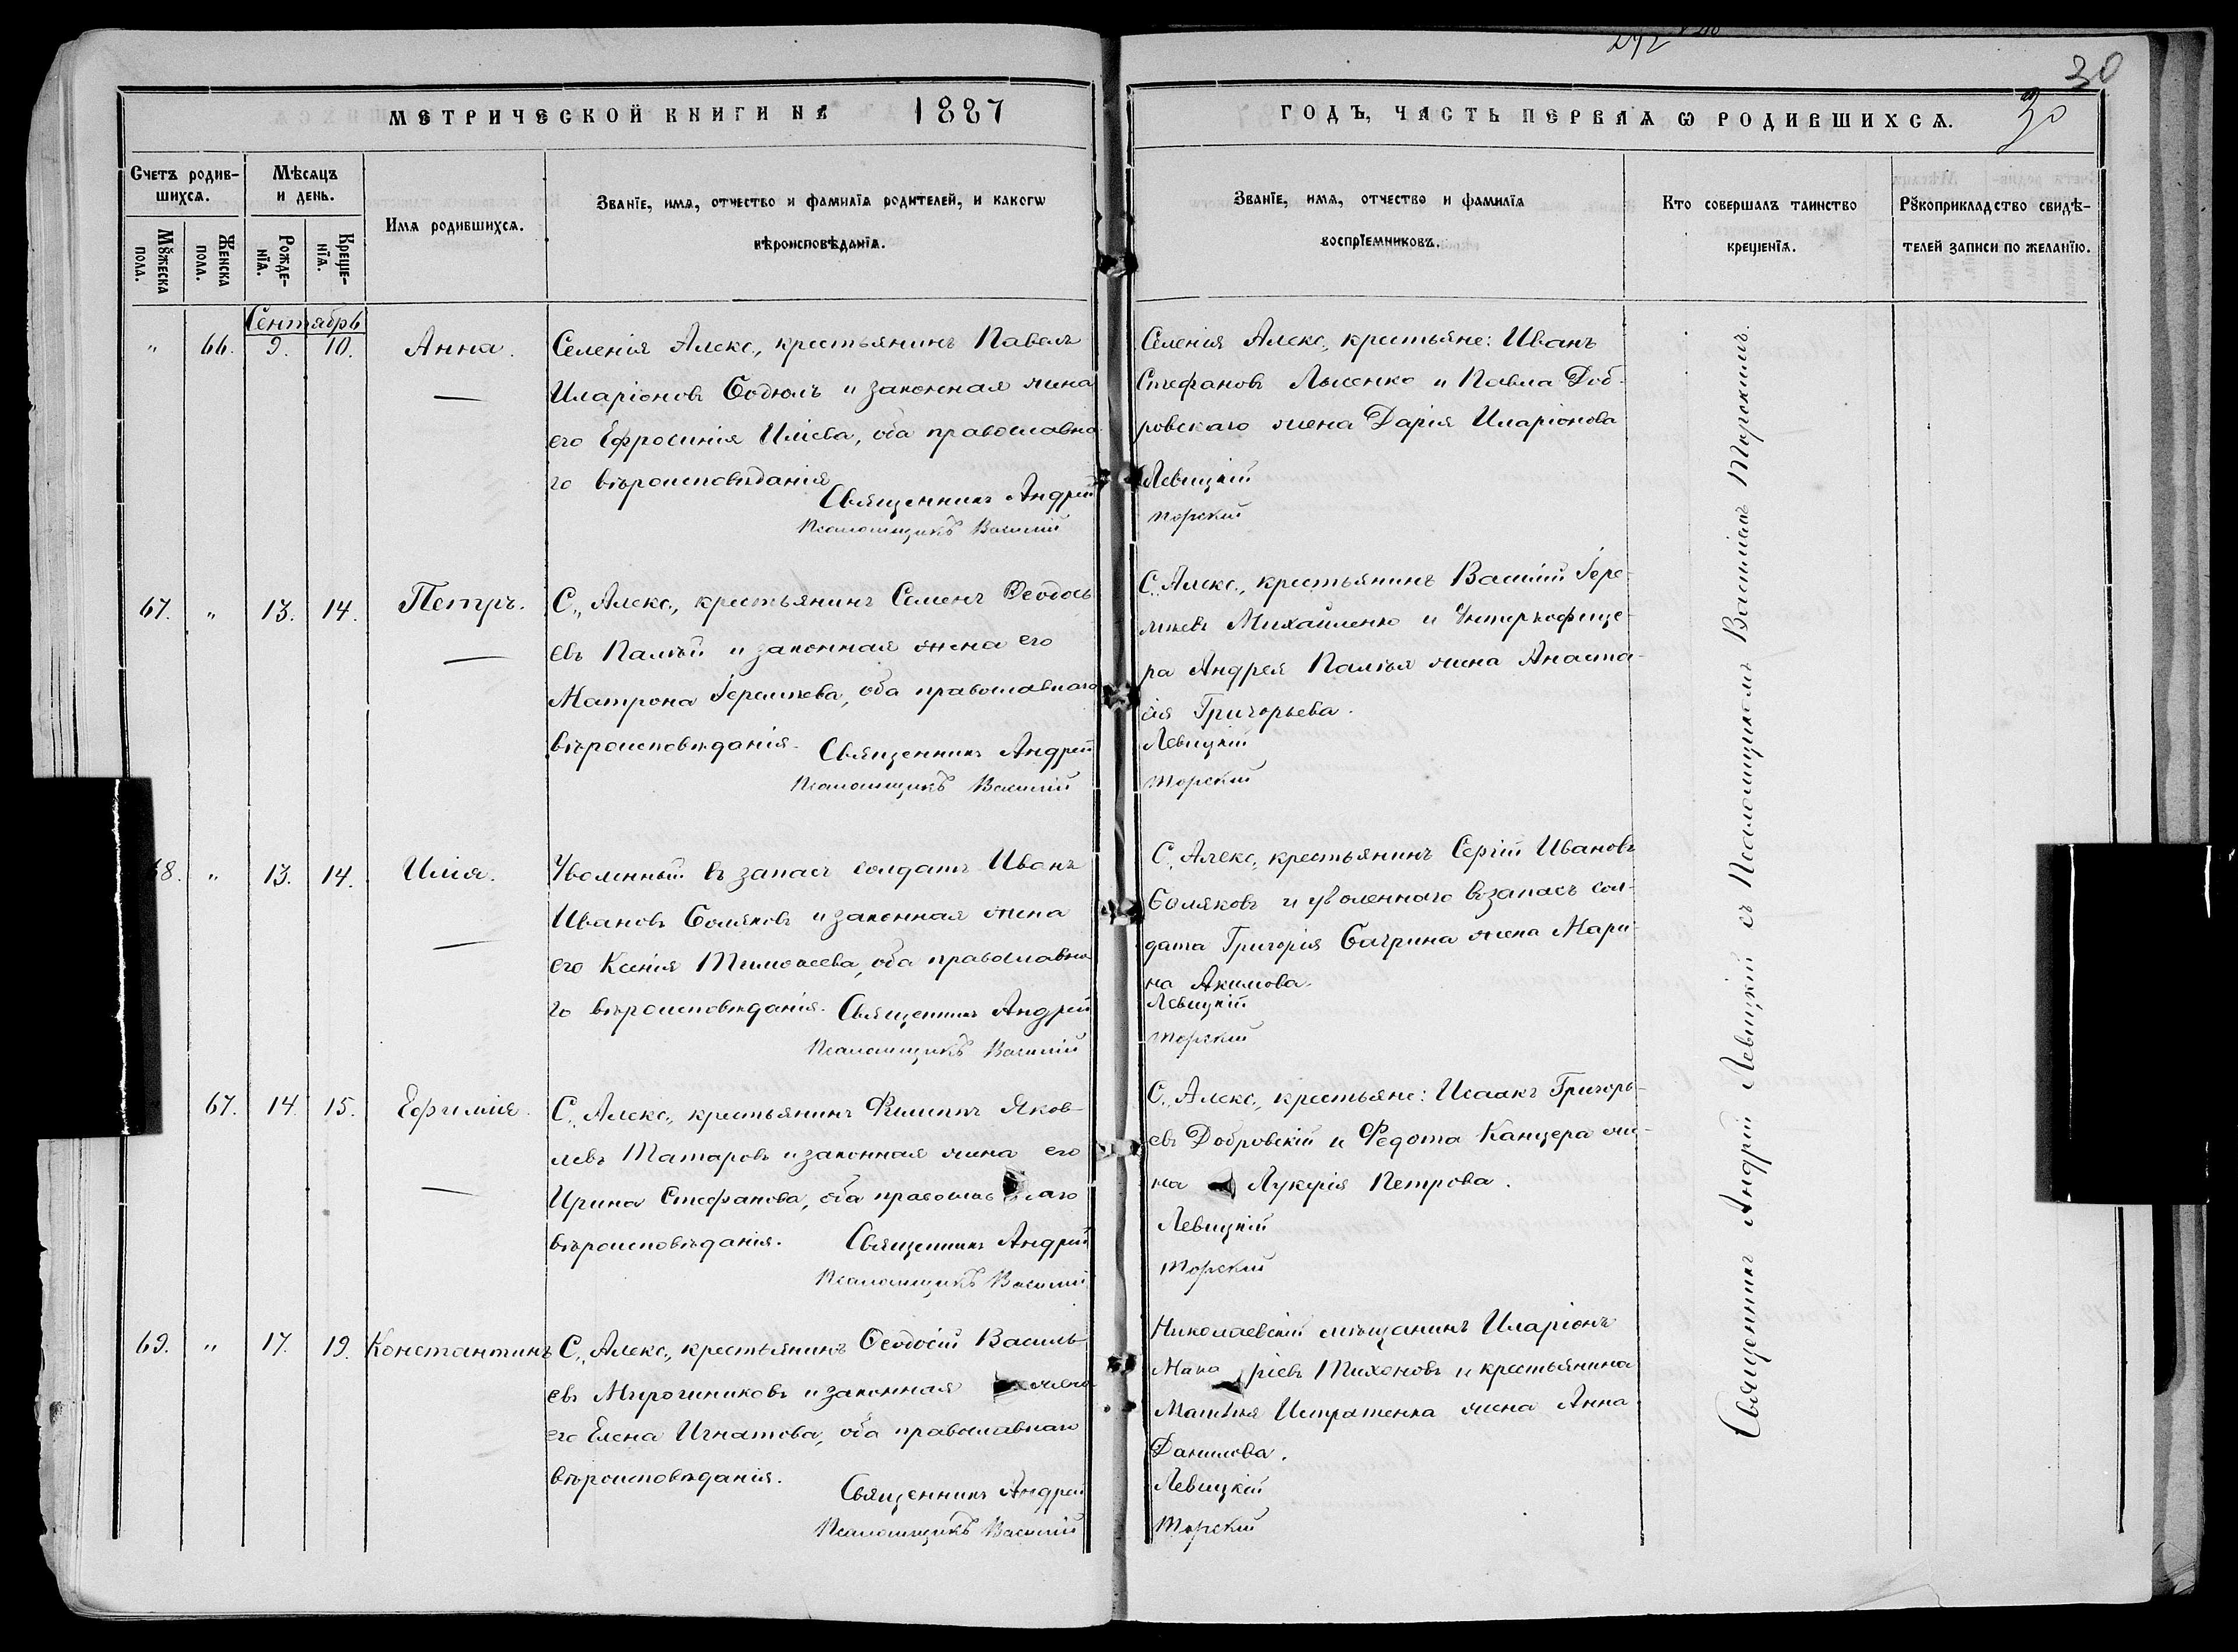 292
30
МЕТРИЧЕСКОЙ КНИГИ НА 1887
ГОДЪ, ЧАСТЬ ПЕРВАѦ Ѡ РОДИВШИХСѦ.
30
Счетъ родив-
шихсѧ.
Мꙋжеска
пола.
Женска
пола.
Мѣсѧцъ
и день.
Рожде-
нїѧ.
Креще-
нїѧ.
Имѧ родившихсѧ.
Званїе, имѧ, отчество и фамилїѧ родителей, и какогѡ
вѣроисповѣданїѧ.
Званїе, имѧ, отчество и фамилїѧ
воспрїемниковъ.
Кто совершалъ таинство
крещенїѧ.
Рꙋкоприкладство свидѣ-
телей записи по желанїю.
Сентябрь
" 66. 9. 10. Анна.
Селенія Алекс., крестьянинъ Павелъ
Иларіоновъ Бодюлъ и законная жена
его Ефросинія Иліева, оба православна-
го вѣроисповѣданія
Священникъ Андрей
Псаломщикъ Василій
Селенія Алекс., крестьяне: Иванъ
Стефановъ Лысенко и Павла Доб-
ровскаго жена Дарія Иларіонова
Левицкій
Торскій
67. " 13. 14. Петръ.
С., Алекс., крестьянинъ Семенъ Ѳеодось
евъ Палѣй и законная жена его
Матрона Іереміева, оба православнаго
вѣроисповѣданія. Священникъ Андрей
Псаломщикъ Василій
С., Алекс., крестьянинъ Василій Іере-
міевъ Михайленко и Унтеръ-офице-
ра Андрея Палѣя жена Анаста-
сія Григорьева.
Левицкій
Торскій
68. " 13. 14. Илія.
Уволенный въ запасъ солдатъ Иванъ
Ивановъ Боляковъ и законная жена
его Ксенія Тимоѳеева, оба православна-
го вѣроисповѣданія. Священникъ Андрей
Псаломщикъ Василій
С. Алекс., крестьянинъ Сергій Ивановъ
Боляковъ и уволеннаго въ запасъ сол-
дата Григорія Багрина жена Мари-
на Акимова.
Левицкій
Торскій
67. 14. 15. Ефимія.
С., Алекс., крестьянинъ Филиппъ Яков-
левъ Татаровъ и законная жена его
Ирина Стефанова, оба православнаго
вѣроисповѣданія. Священникъ Андрей
Псаломщикъ Василій
С., Алекс., крестьяне: Исаакъ Григорь-
евъ Добровскій и Федота Канцера же-
на Лукерія Петрова.
Левицкій
Торскій
69. " 17. 19. Константинъ
С., Алекс., крестьянинъ Ѳеодосій Василь-
евъ Мирошниковъ и законная жена
его Елена Игнатова, оба православнаго
вѣроисповѣданія.
Священникъ Андрей
Псаломщикъ Василій
Николаевскій мѣщанинъ Иларіонъ
Мака ріевъ Тихоновъ и крестьянина
Матѳѣя Истратенка жена Анна
Данилова.
Левицкій
Торскій
Священникъ Андрей Левицкій съ Псаломщикомъ Василіемъ Торскимъ.